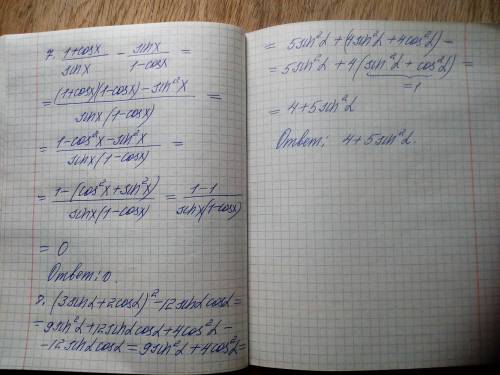 7. (1+cosx)/sinx - sinx/(1-cosx) =
= ((1+cosx)(1-cosx) - sin²x)/(sinx(1-cosx)) =
= (1-cos²x-sin²x)/(sinx(1-cosx)) =
= (1-(cos²x+sin²x))/(sinx(1-cosx)) = (1-1)/(sinx(1-cosx))
= 0
Ответ: 0.
8. (3sinα+2cosα)² - 12sinαcosα =
= 9sin²α+12sinαcosα+4cos²α -
- 12sinαcosα = 9sin²α + 4cos²α =
= 5sin²α + (4sin²α + 4cos²α) -
= 5sin²α + 4(sin²α + cos²α) =
=1
= 4+5sin²α
Ответ: 4+5sin²α.